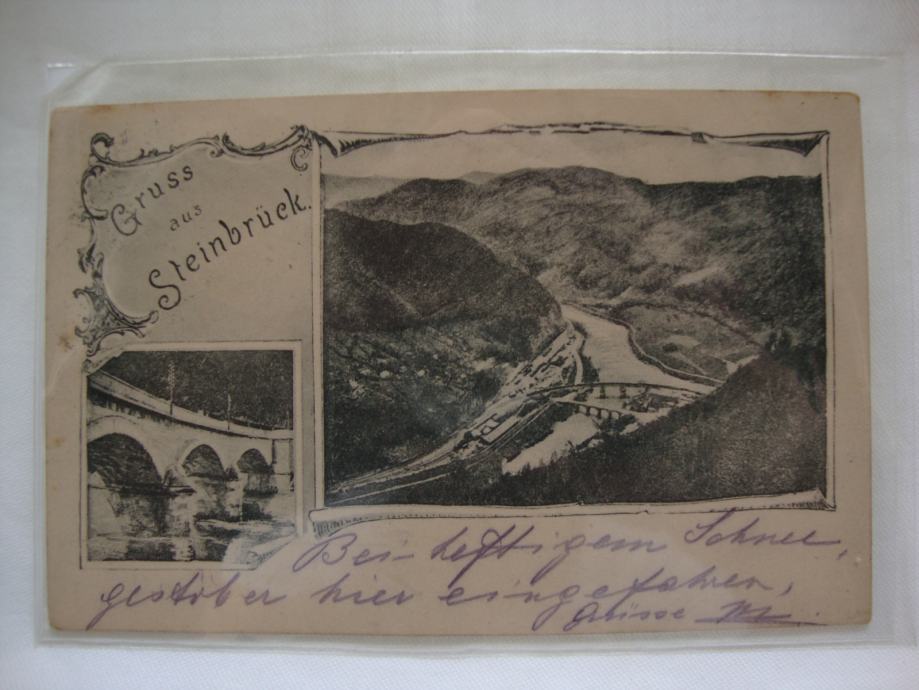 Gruss
aus
Steinbrück.
Bei heftigem Schnee,
gestöber hier eingefahren,
Grüsse